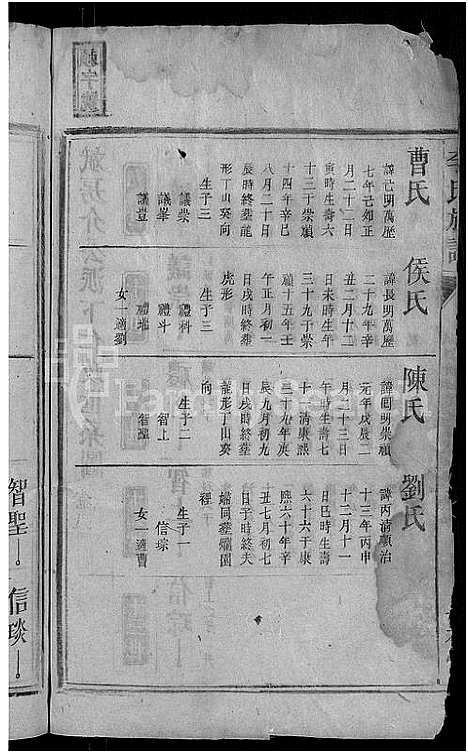 李氏族譜
曹氏
諱己明萬歷
七年己卯正
月二十二日
寅時生壽六
十三于崇禎
十四年辛巳
八月二十日
辰時終葬龍
形丁山癸向
生子三
議崇
議峯
議豈
侯氏
諱長明萬歷
二十九年辛
丑二月十二
日未時生壽
三十九于崇
禎十五年壬
午正月初一
日戌時終葬
虎形
生子三
禮科
禮斗
禮
女一適劉
陳氏
諱圓明崇禎
元年戊辰二
月二十三日
午時生壽七
十一清康熙
三十九年庚
辰九月初九
日戌時終葬
龍形丁山癸
向
生子二
智上
智聖
劉氏
諱丙清順治
十三年丙申
十二月十一
日巳時生壽
六十六于康
熙六十年辛
丑七月初七
日子時終夫
婦同葬壩園
裡
生子一
信琮
女一適曹
智聖
信琰